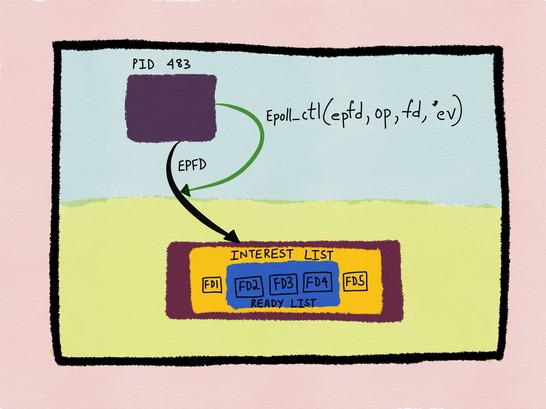 PID 483
Epoll_ctl(epfd, op, fd, *ev)
EPFD
INTEREST LIST
FD1 FD2 FD3 FD4 FD5
READY LIST